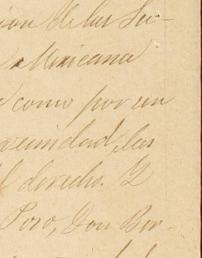 ion de las Su-
Mexicana
como por un
vecindad, las
l derecho. Y
Poro, Don Ber-